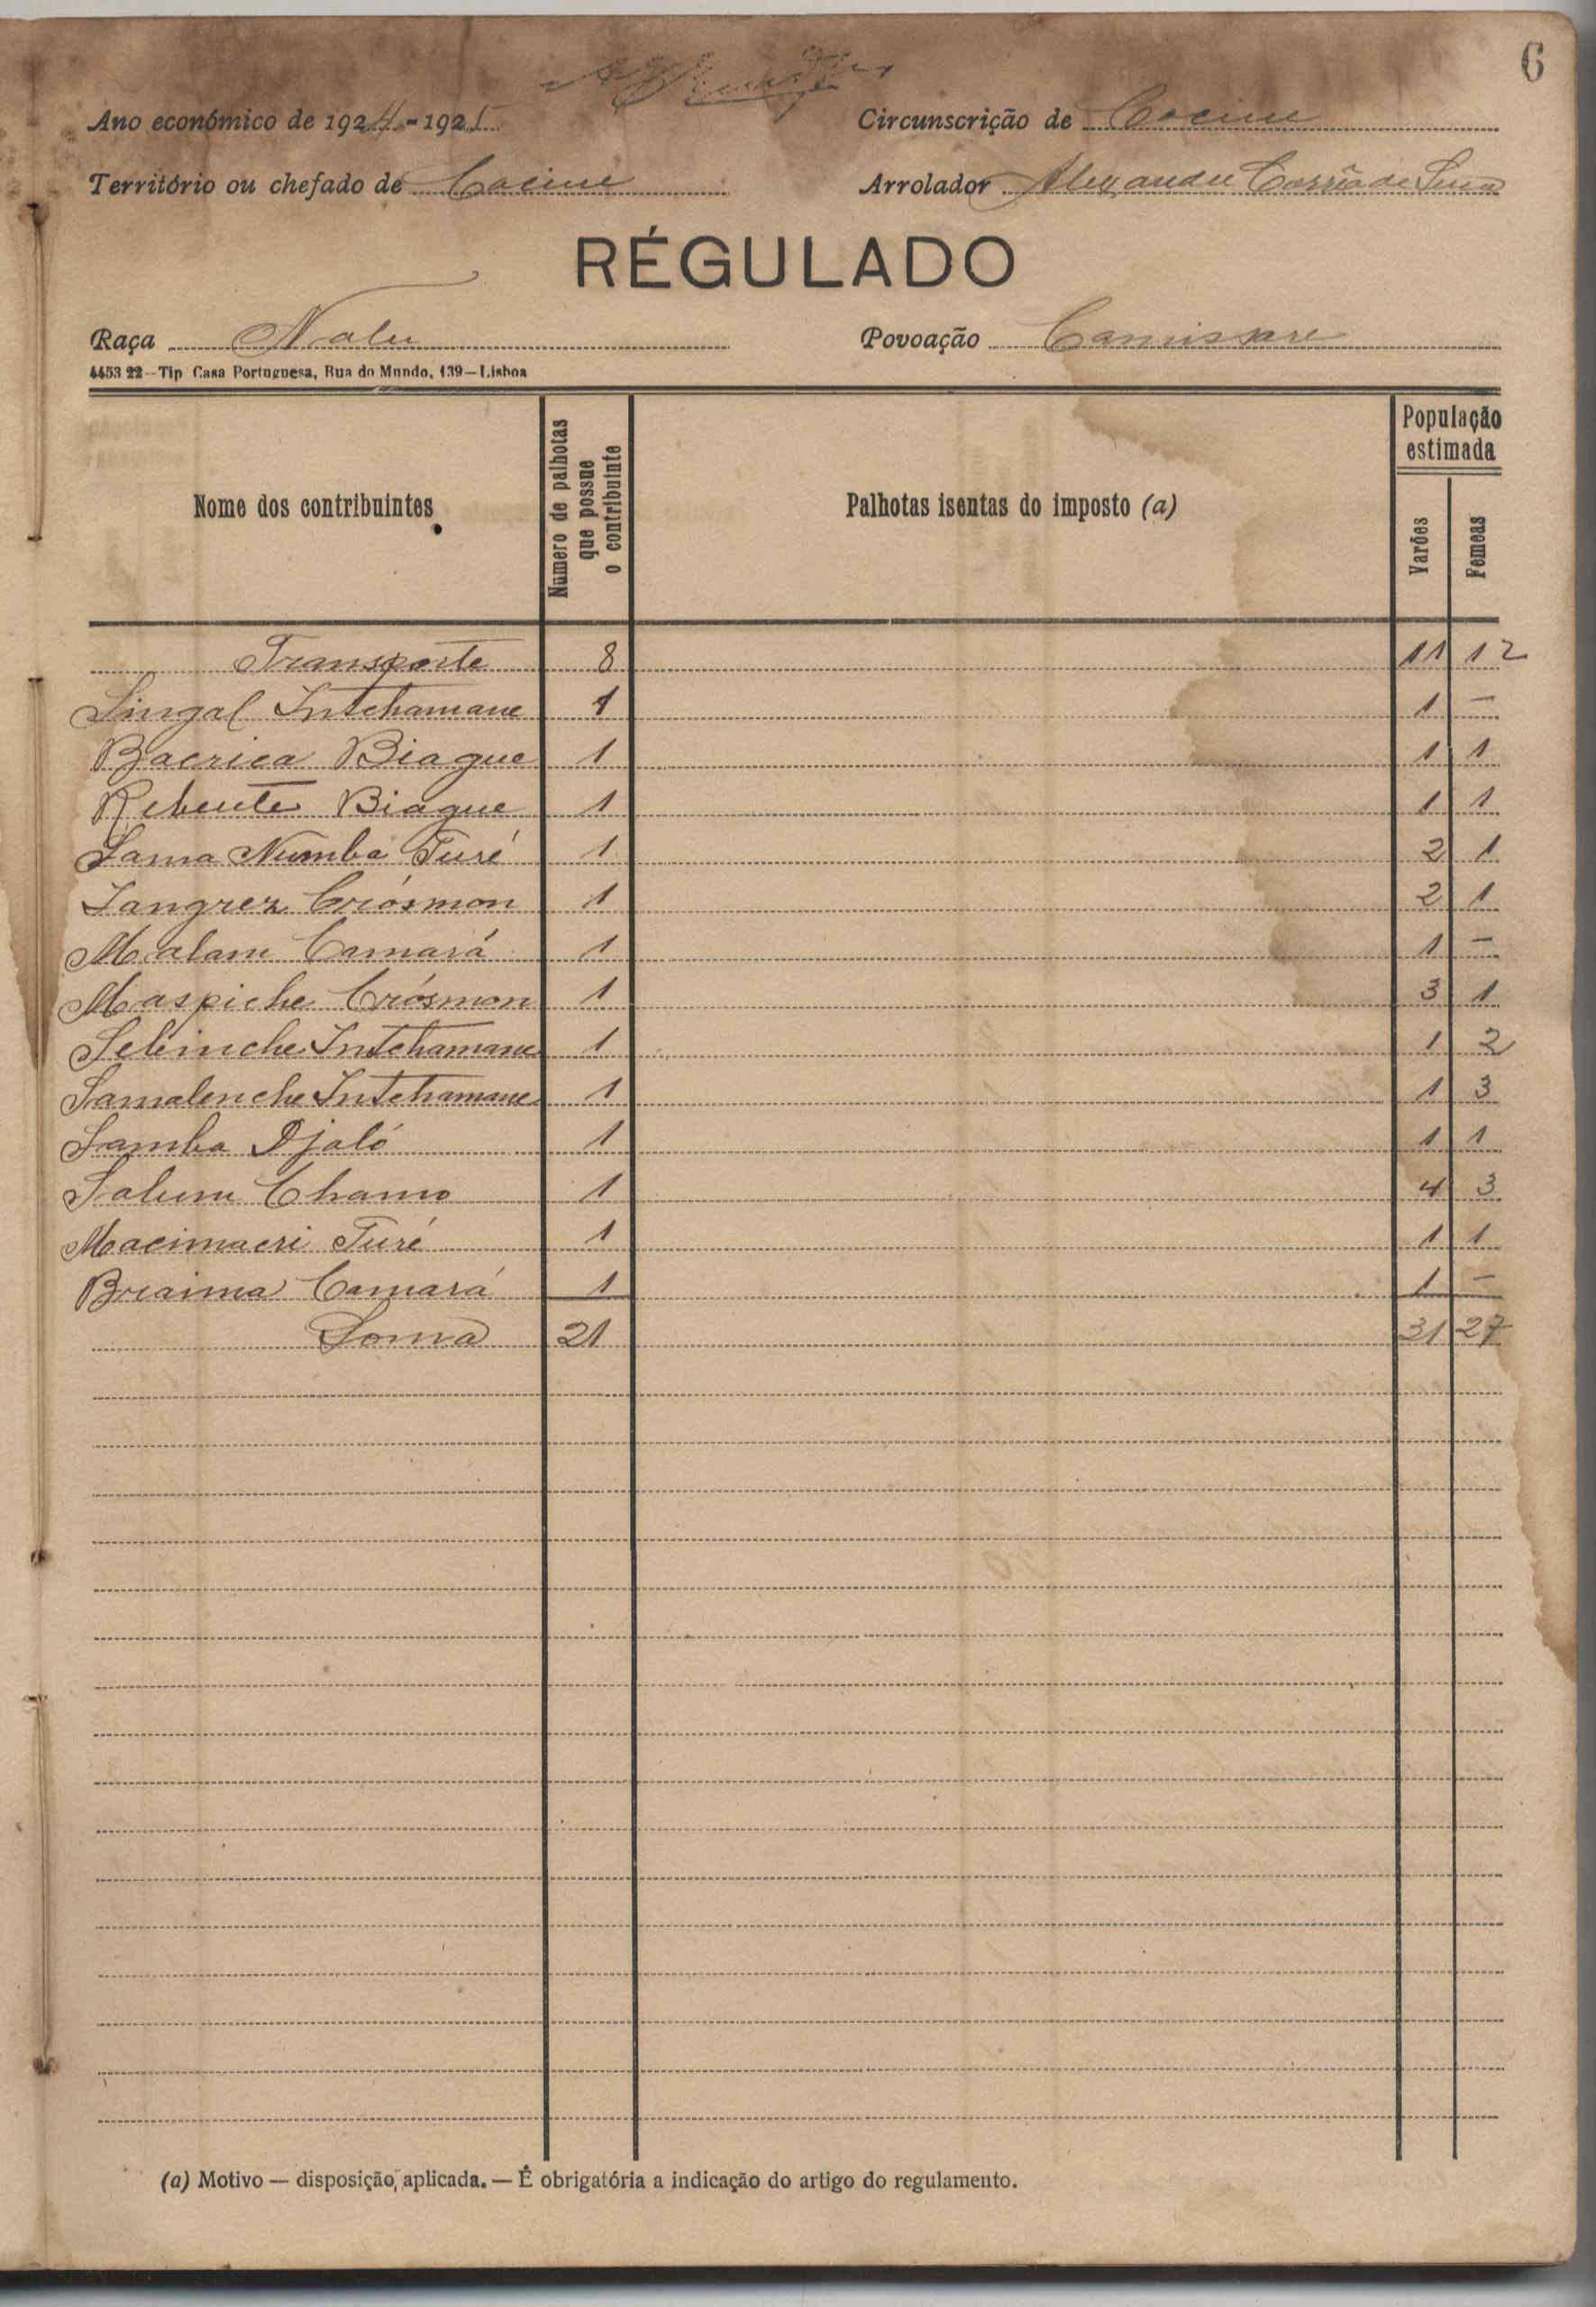 6
Ano económico de 1924-1925 Circunscrição de Cacine
Território ou chefado de Cacine Arrolador Alexandre Corrêa de
RÉGULADO
Raça Nalu Povoação Camissare
4453 22—Tip Casa Portuguesa, Rua do Mundo, 139—Lisboa
Nome dos contribuintes Número de palhotas que possue o contribuinte Palhotas isentas do imposto (a) População estimada Varões Femeas
Transporte 8 11 12
Singal Intchamane 1 1 —
Bacrica Biague 1 1 1
Rebente Biague 1 1 1
Sana Numba Turé 1 2 1
Tangrez Criósmon 1 2 1
Malam Camará 1 1 —
Maspiche Criósmon 1 3 1
Selinche Intchamane 1 1 2
Samalenche Intchamane 1 1 3
Samba Djaló 1 1 1
Salum Chamo 1 4 3
Macimacri Turé 1 1 1
Braima Camará 1 1 —
Soma 21 31 27
(a) Motivo — disposição, aplicada. — É obrigatória a indicação do artigo do regulamento.